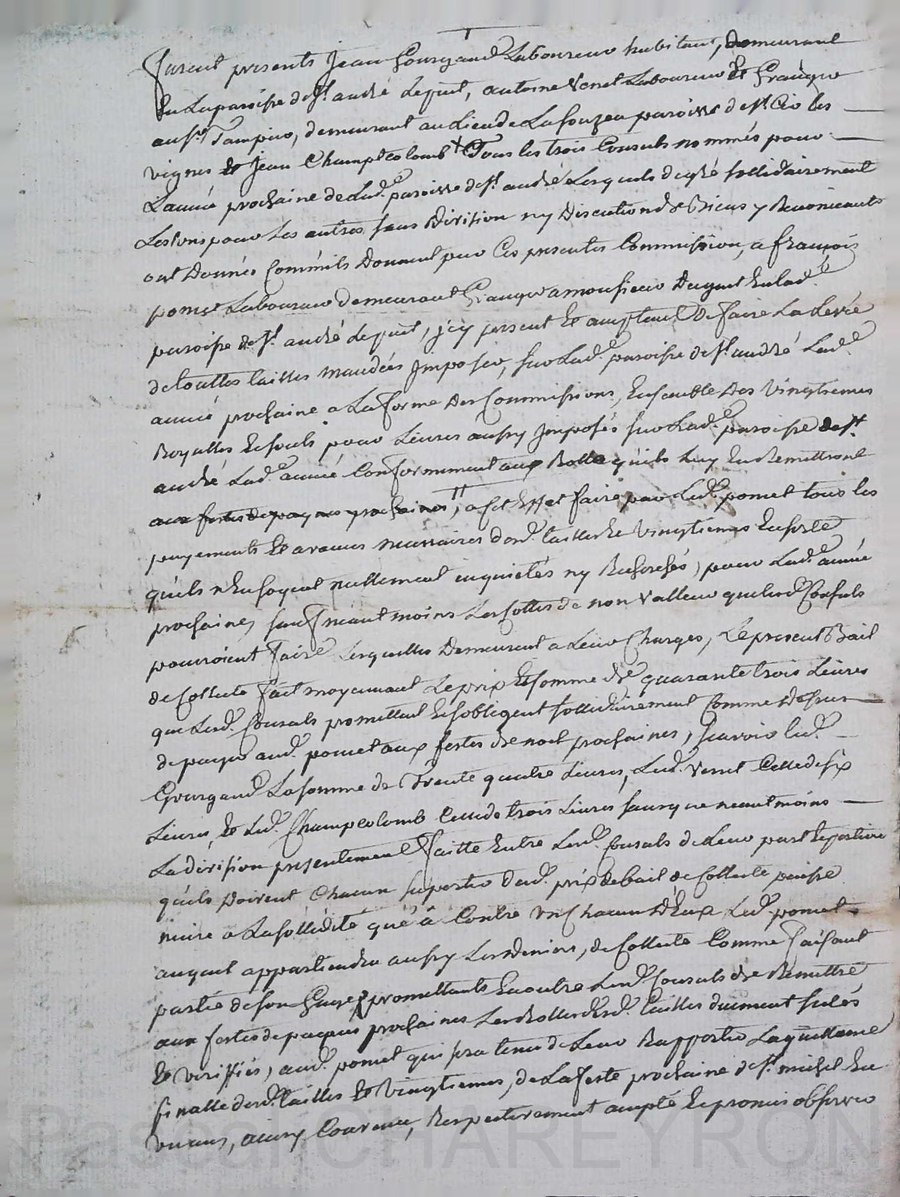 furent presents Jean Gourgaud Laboureur habitant, demeurant
En La paroisse de st. andré Lepuit, antoine Venet Laboureur Et Granger
au sr. Tampier, demeurant au Lieu de La fouzea paroisse de st. Cir les
vignes Et Jean Champtcolomb + Tous les trois Consuls nommés pour
L'année prochaine de Lade. paroisse de st. andré Lesquels de gré sollidairement
Les uns pour Les autres sans Division ny Discution de Biens y Renonceants
ont Donnés Commis Donnent par Ces presentes Commission, a françois
pomet Laboureur demeurant Granger a monsieur Duguet En lade.
paroisse de st. andré Lepuit, icy present Et acceptant De faire La Levée
de touttes tailles mandées Imposées sur Lade. paroisse de st. andré Lade.
année prochaine a La forme Des Commissions, Ensemble Des Vingtiemes
Royalles Et sols pour Livres aussy Imposés sur Lade. paroisse de st.
andré Lade. année Conformement aux Rolles qu'ils Luy En Remettront
aux festes de paques prochaines, a set Effet faire par Led. pomet tous les
payements Et avances necessaires desd. tailles Et vingtiemes En sorte
qu'ils n'En soyent nullement inquietés ny Recherchés, pour Lade. année
prochaine, sauf neant moins Les Cottes de non Valleur que lesd. Consuls
pourroient faire Lesquelles Demeurent a Leur Charges, Le present Bail
de Collecte fait moyennant Le prix Et somme de quarante trois Livres
que Lesd. Consuls promettent Et s'obligent sollidairement Comme Dessus
de payer aud. pomet aux festes de noel prochaines, sçavoir led.
Gourgaud La somme de Trente quatre Livres, Led. Venet Celle de six
Livres, Et Led. Champcolomb Celle de trois Livres sans que neant moins
La division presentement faitte Entre Lesd. Consuls de Leur part Et portion
qu'ils Doivent Chacun suporter dud. prix de bail de Collecte puisse
nuire a La sollidité qu'à Contre un Chacun D'Eux Led. pomet
auquel appartiendra aussy Les deniers, de Collecte Comme faisant
partie de son Gage, promettants En outre Lesd. Consuls de Remettre
aux festes de paques prochaines Les Rolles desd. tailles duement sçelés
Et veriffiés, aud. pomet qui sera tenu de Leur Rapporter La quittance
finalle desd. tailles Et vingtiemes, de La feste prochaine de st. michel En
un an, ainsy Convenu, Respectivement accepté Et promis observer